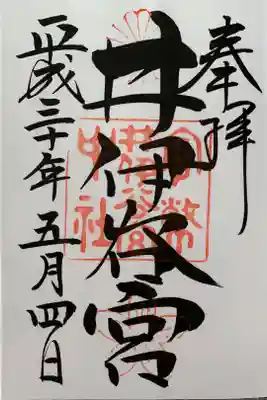 奉拝
井伊谷宮
官幣中社井伊谷宮
平成三十年五月四日